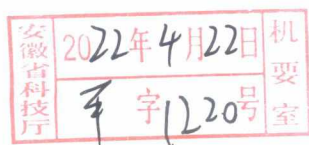 安徽省科技厅
2022年4月22日
字1220号
机要室